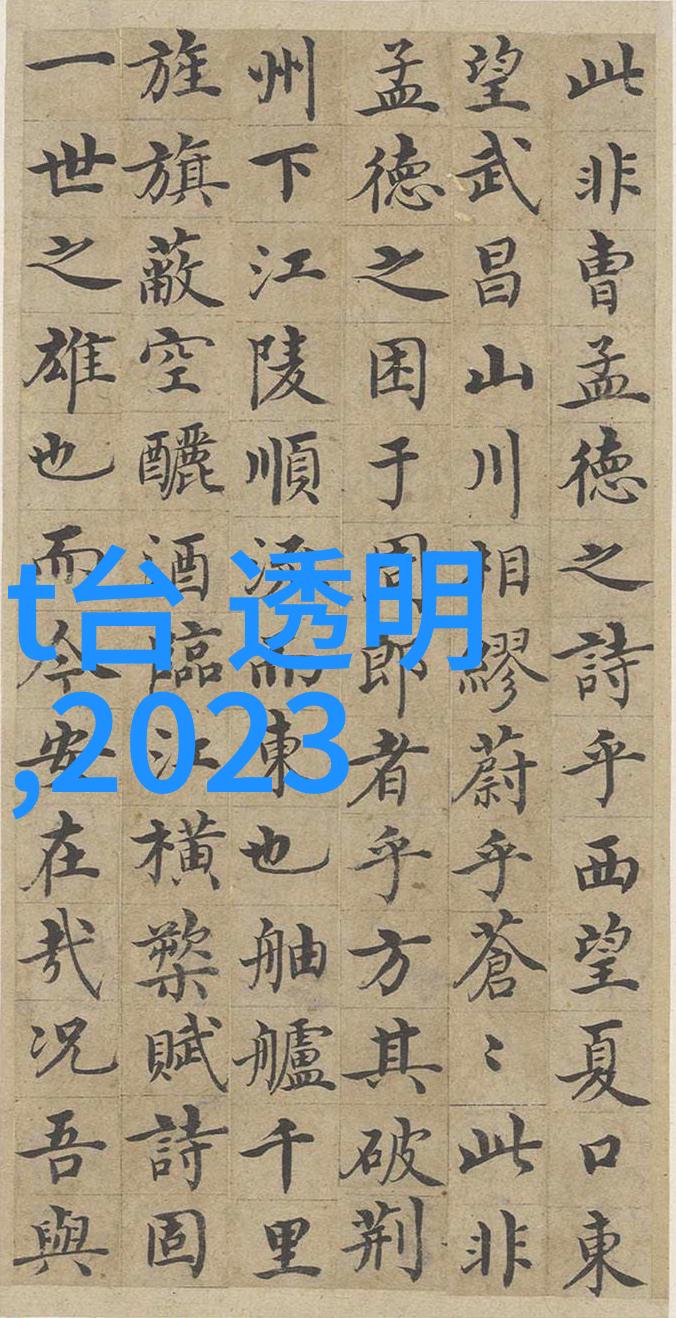 此非曹孟德之詩乎西望夏口東
望武昌山川相繆蔚乎蒼〻此非
孟德之困于周郎者乎方其破荊
州下江陵順流而東也舳艫千里
旌旗蔽空釃酒臨江橫槊賦詩固
一世之雄也而今安在哉況吾與
t台 透明
,2023